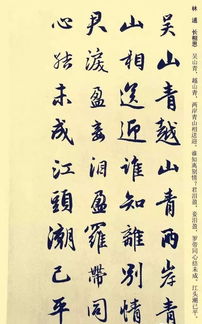 林 逋 长相思 吴山青,越山青,两岸青山相送迎,谁知离别情?君泪盈,妾泪盈,罗带同心结未成,江头潮已平。
吴山青越山青两岸青
山相送迎谁知離别情
君淚盈妾泪盈羅帶同
心結未成江頭潮已平